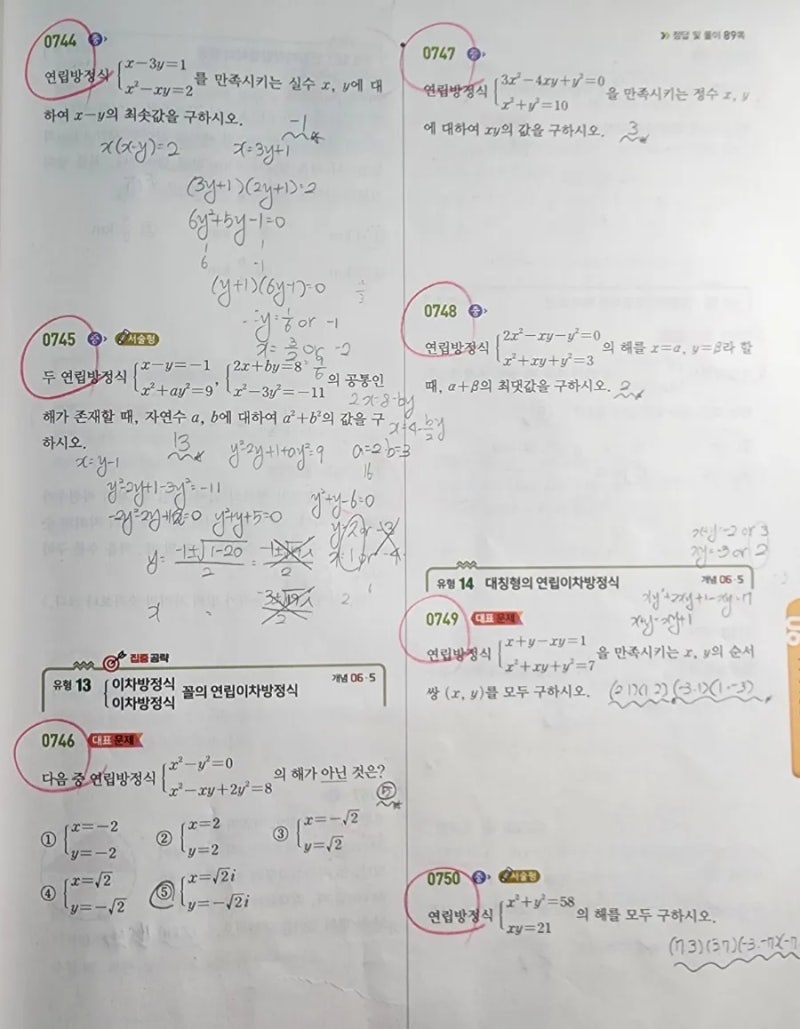 정답 및 풀이 89쪽
0744 중
연립방정식 { x-3y=1
x²-xy=2 를 만족시키는 실수 x, y에 대
하여 x-y의 최솟값을 구하시오.
-1
x(x-y)=2 x=3y+1
(3y+1)(2y+1)=2
6y²+5y-1=0
1 1
6 -1
(y+1)(6y-1)=0
∴y=1/6 or -1
x=3/2 or -2
0745 중 서술형
두 연립방정식 { x-y=-1
x²+ay²=9 , { 2x+by=8
x²-3y²=-11 의 공통인
해가 존재할 때, 자연수 a, b에 대하여 a²+b²의 값을 구
하시오.
13
2x=8-by
x=4-b/2y
x=y-1 y²-2y+1+ay²=9 a=2 b=3
16
y²-2y+1-3y²=-11
y²+y-6=0
y²+y+5=0
y=(-1±√1-20)/2
x
집중 공략
유형 13 { 이차방정식
이차방정식 꼴의 연립이차방정식 개념 06·5
0746 대표 문제
다음 중 연립방정식 { x²-y²=0
x²-xy+2y²=8 의 해가 아닌 것은?
⑤
① { x=-2
y=-2 ② { x=2
y=2 ③ { x=-√2
y=√2
④ { x=√2
y=-√2 ⑤ { x=√2i
y=-√2i
0747 중
연립방정식 { 3x²-4xy+y²=0
x²+y²=10 을 만족시키는 정수 x, y
에 대하여 xy의 값을 구하시오. 3
0748 중
연립방정식 { 2x²-xy-y²=0
x²+xy+y²=3 의 해를 x=α, y=β라 할
때, α+β의 최댓값을 구하시오. 2
x+y=-2 or 3
xy=-3 or 2
유형 14 대칭형의 연립이차방정식 개념 06·5
x+y=xy+1
0749 대표 문제
연립방정식 { x+y-xy=1
x²+xy+y²=7 을 만족시키는 x, y의 순서
쌍 (x, y)를 모두 구하시오. (2 1)(1 2)(-3 1)(1 -3)
0750 중 서술형
연립방정식 { x²+y²=58
xy=21 의 해를 모두 구하시오.
(7 3)(3 7)(-3 -7)(-7